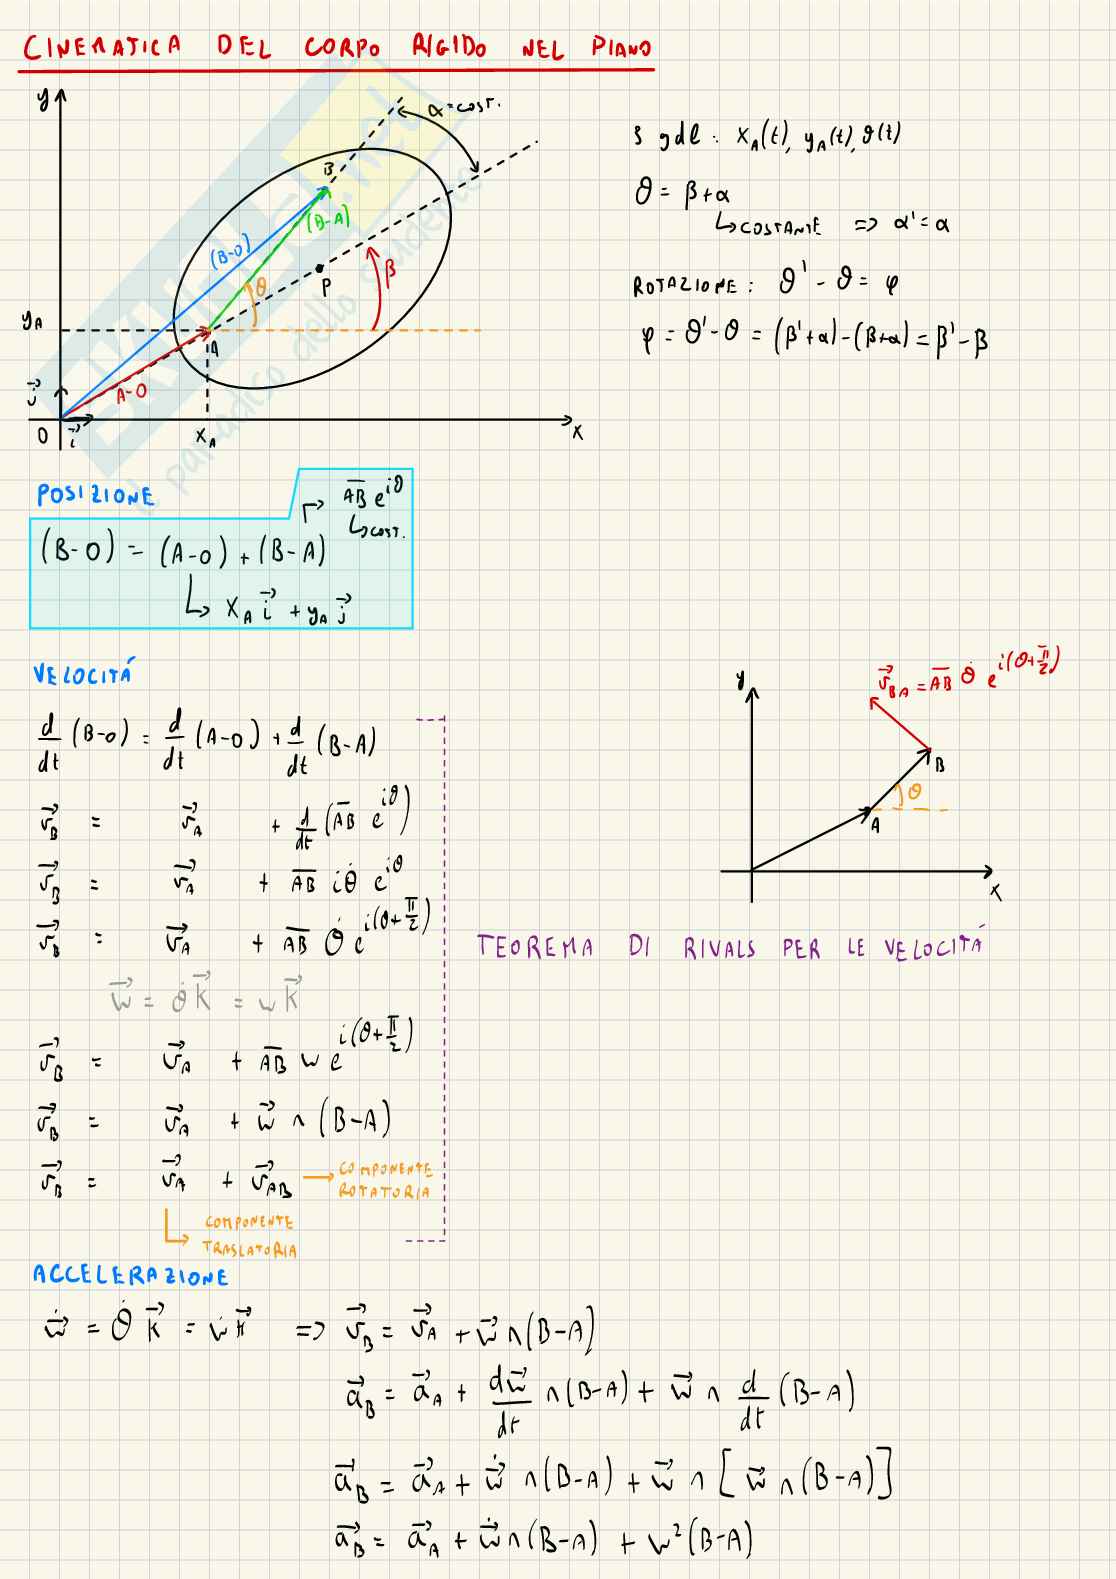 CINEMATICA DEL CORPO RIGIDO NEL PIANO
y
α=COST.
B
(B-A)
(B-O)
θ
P
β
yA
A
A-O
j⃗
O
i⃗
xA
x
3 gdl : xA(t), yA(t), θ(t)
θ = β+α
↳COSTANTE => α'=α
ROTAZIONE: θ' - θ = φ
φ = θ'-θ = (β'+α)-(β+α) = β'-β
POSIZIONE
A̅B̅ e^iθ
↳COST.
(B-O) = (A-O) + (B-A)
↳ xA i⃗ + yA j⃗
VELOCITÁ
d/dt (B-O) = d/dt (A-O) + d/dt (B-A)
v⃗B = v⃗A + d/dt (A̅B̅ e^iθ)
v⃗B = v⃗A + A̅B̅ iθ̇ e^iθ
v⃗B = v⃗A + A̅B̅ θ̇ e^i(θ+π/2)
TEOREMA DI RIVALS PER LE VELOCITÁ
w⃗ = θ̇ k⃗ = w k⃗
v⃗B = v⃗A + A̅B̅ w e^i(θ+π/2)
v⃗B = v⃗A + w⃗ ∧ (B-A)
v⃗B = v⃗A + v⃗AB → COMPONENTE
ROTATORIA
↳ COMPONENTE
TRASLATORIA
y
v⃗BA = A̅B̅ θ̇ e^i(θ+π/2)
B
θ
A
x
ACCELERAZIONE
ẇ⃗ = θ̈ k⃗ = ẇ k⃗ => v⃗B = v⃗A + w⃗ ∧ (B-A)
a⃗B = a⃗A + dw⃗/dt ∧ (B-A) + w⃗ ∧ d/dt (B-A)
a⃗B = a⃗A + ẇ⃗ ∧ (B-A) + w⃗ ∧ [w⃗ ∧ (B-A)]
a⃗B = a⃗A + ẇ⃗ ∧ (B-A) + w²(B-A)